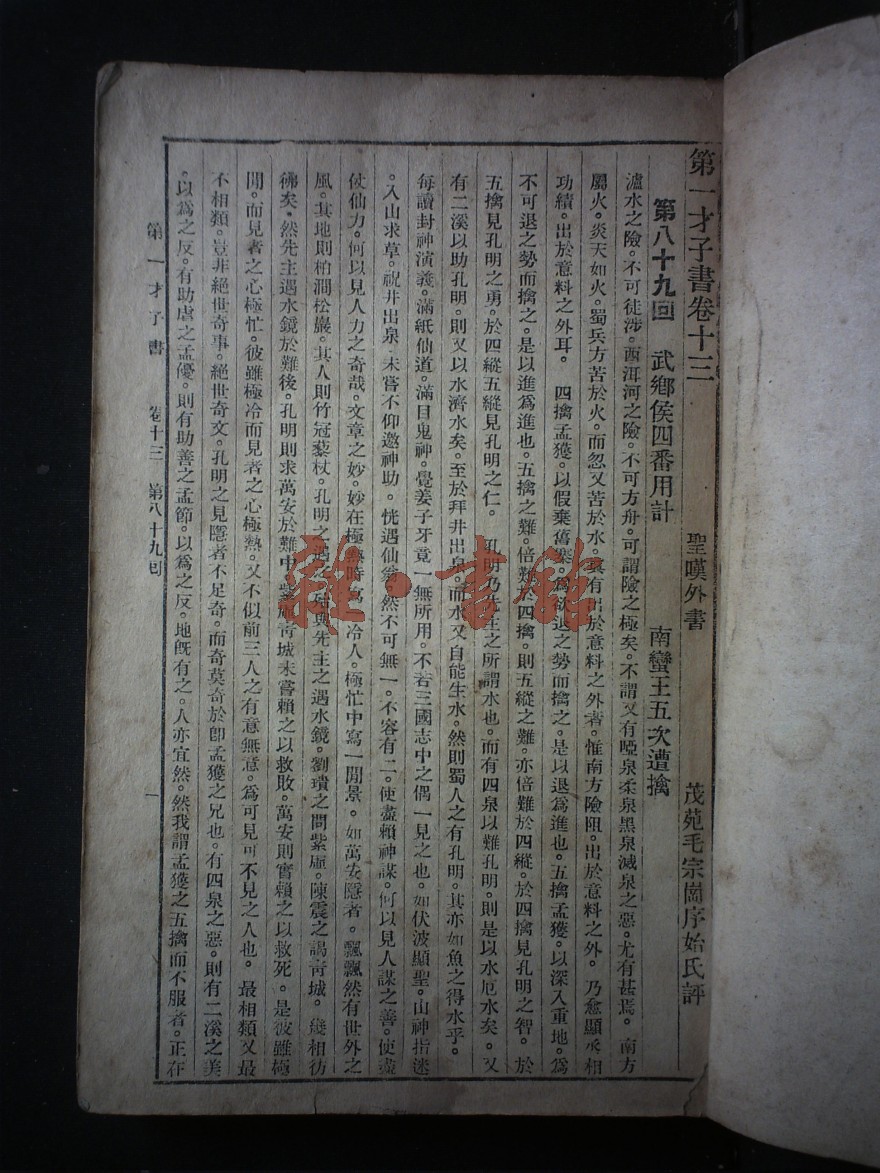 第一才子書卷十三
聖嘆外書
茂苑毛宗崗序始氏評
第八十九回 武鄉侯四番用計 南蠻王五次遭擒
瀘水之險。不可徒涉。西洱河之險。不可方舟。可謂險之極矣。不謂又有啞泉柔泉黑泉滅泉之惡。尤有甚焉。南方
屬火。炎天如火。蜀兵方苦於火。而忽又苦於水。真有出於意料之外者。惟南方險阻。出於意料之外。乃愈顯丞相
功績。出於意料之外耳。 四擒孟獲。以假棄舊寨。為欲退之勢而擒之。是以退為進也。五擒孟獲。以深入重地。為
不可退之勢而擒之。是以進為進也。五擒之難。倍難於四擒。則五縱之難。亦倍難於四縱。於四擒見孔明之智。於
五擒見孔明之勇。於四縱五縱見孔明之仁。 孔明乃先主之所謂水也。而有四泉以難孔明。則是以水厄水矣。又
有二溪以助孔明。則又以水濟水矣。至於拜井出泉。而水又自能生水。然則蜀人之有孔明。其亦如魚之得水乎。
每讀封神演義。滿紙仙道。滿目鬼神。覺姜子牙竟一無所用。不若三國志中之偶一見之也。如伏波顯聖。山神指迷
。入山求草。祝井出泉。未嘗不仰邀神助。恍遇仙翁。然不可無一。不容有二。使盡賴神謀。何以見人謀之善。使盡
仗仙力。何以見人力之奇哉。文章之妙。妙在極熱時寫一冷人。極忙中寫一閒景。如萬安隱者。飄飄然有世外之
風。其地則柏澗松巖。其人則竹冠藜杖。孔明之遇之。殆與先主之遇水鏡。劉璝之問紫虛。陳震之謁青城。幾相彷
彿矣。然先主遇水鏡於難後。孔明則求萬安於難中。紫虛青城未嘗賴之以救敗。萬安則實賴之以救死。是彼雖極
閒。而見者之心極忙。彼雖極冷而見者之心極熱。又不似前三人之有意無意。為可見可不見之人也。 最相類又最
不相類。豈非絕世奇事。絕世奇文。孔明之見隱者不足奇。而奇莫奇於即孟獲之兄也。有四泉之惡。則有二溪之美
。以為之反。有助虐之孟優。則有助善之孟節。以為之反。地既有之。人亦宜然。然我謂孟獲之五擒而不服者。正在
第一才子書 卷十三 第八十九回 一
雜·書館